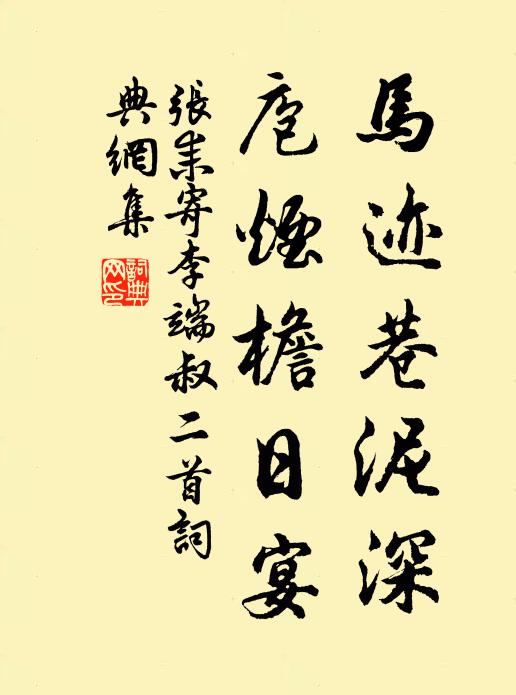 馬迹巷泥深
庖煙檐日宴
張耒寄李端叔二首詞
典網集
詞典
网印